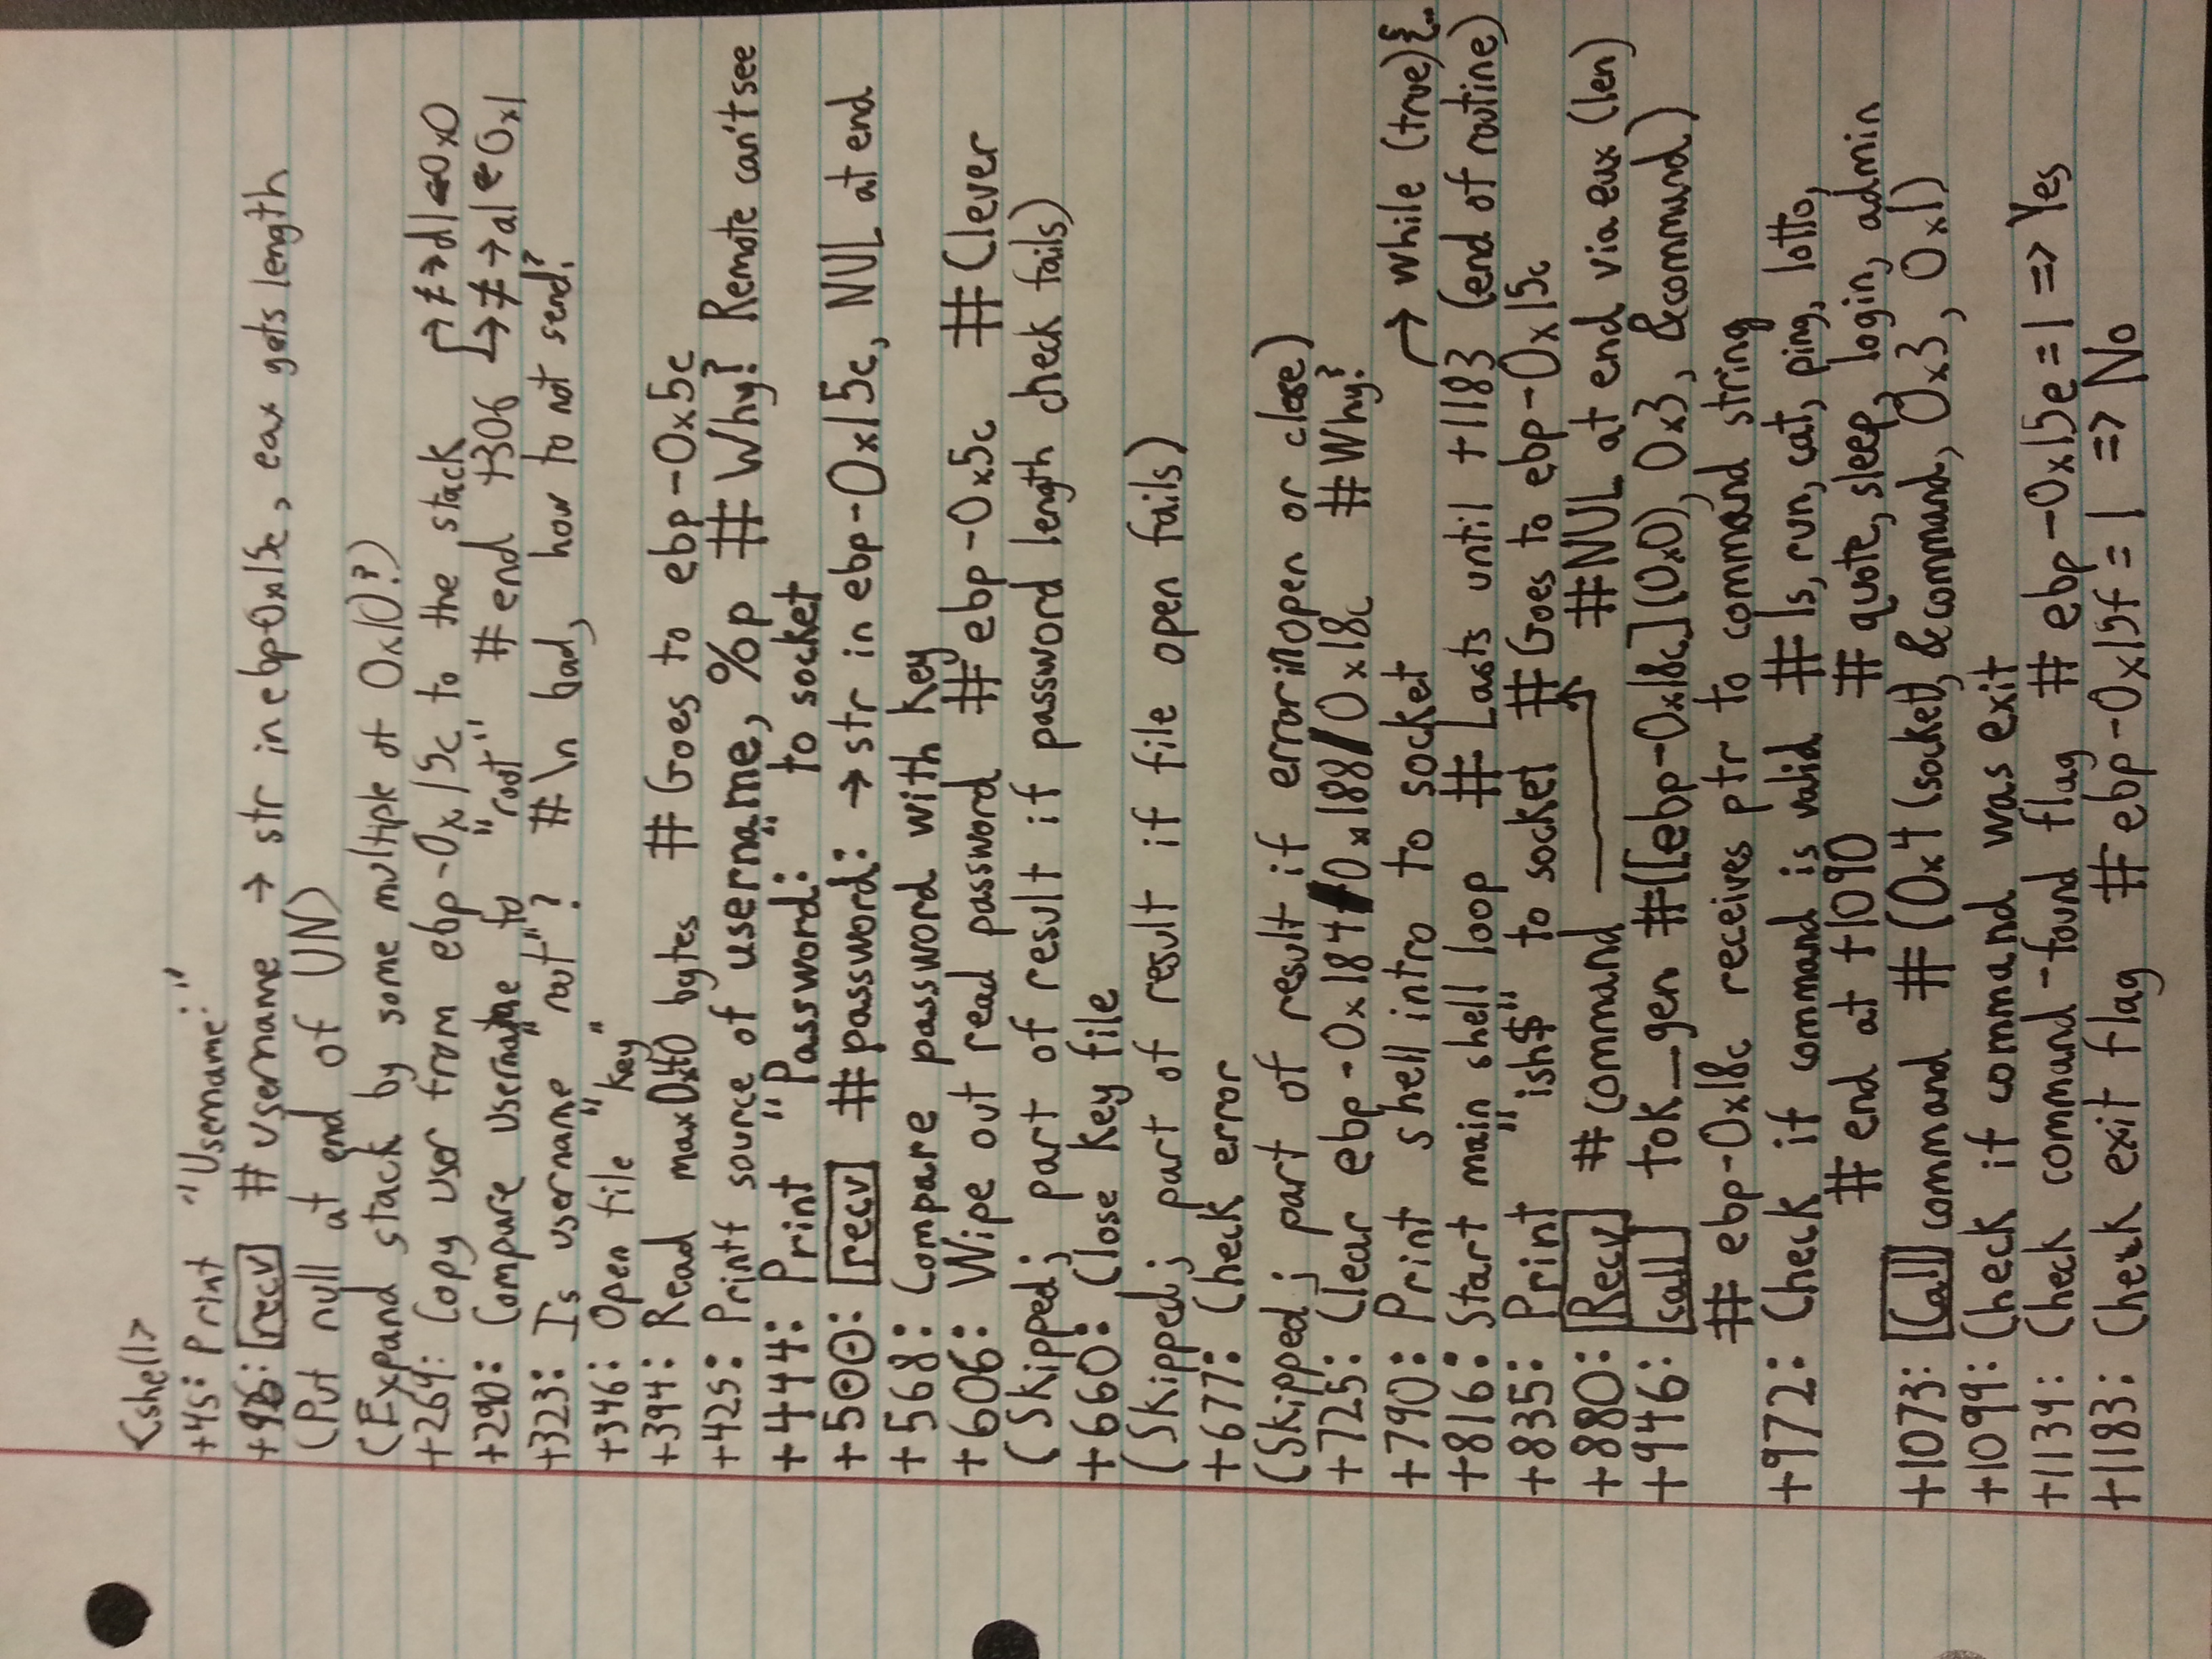 <shell>
+45: Print "Username:"
+96: recv # username → str in ebp-0x15c, eax gets length
(Put null at end of UN)
(Expand stack by some multiple of 0x10?)
+269: Copy user from ebp-0x15c to the stack → ≠→dl←0x0
+290: Compare username to "root" # end +306 → ≠→al←0x1
+323: Is username "root"? # \n bad, how to not send?
+346: Open file "key"
+394: Read max 0x40 bytes # Goes to ebp-0x5c
+425: Printf source of username, %p # Why? Remote can't see
+444: Print "Password: " to socket
+500: recv # password: → str in ebp-0x15c, NUL at end
+568: Compare password with key
+606: Wipe out read password # ebp-0x5c # Clever
(Skipped; part of result if password length check fails)
+660: Close key file
(Skipped; part of result if file open fails)
+677: Check error
(Skipped; part of result if error in open or close)
+725: Clear ebp-0x184/0x188/0x18c # Why?
+790: Print shell intro to socket → while (true){...
+816: Start main shell loop # Lasts until +1183 (end of routine)
+835: Print "ish$" to socket # Goes to ebp-0x15c
+880: Recv # command # NUL at end via eux (len)
+946: call tok_gen #([ebp-0x18c](0x0), 0x3, &command)
# ebp-0x18c receives ptr to command string
+972: Check if command is valid # ls, run, cat, ping, lotto,
# end at +1090 # quote, sleep, login, admin
+1073: Call command # (0x4 (socket), &command, 0x3, 0x1)
+1099: Check if command was exit
+1139: Check command-found flag # ebp-0x15e=1 => Yes
+1183: Check exit flag # ebp-0x15f=1 => No